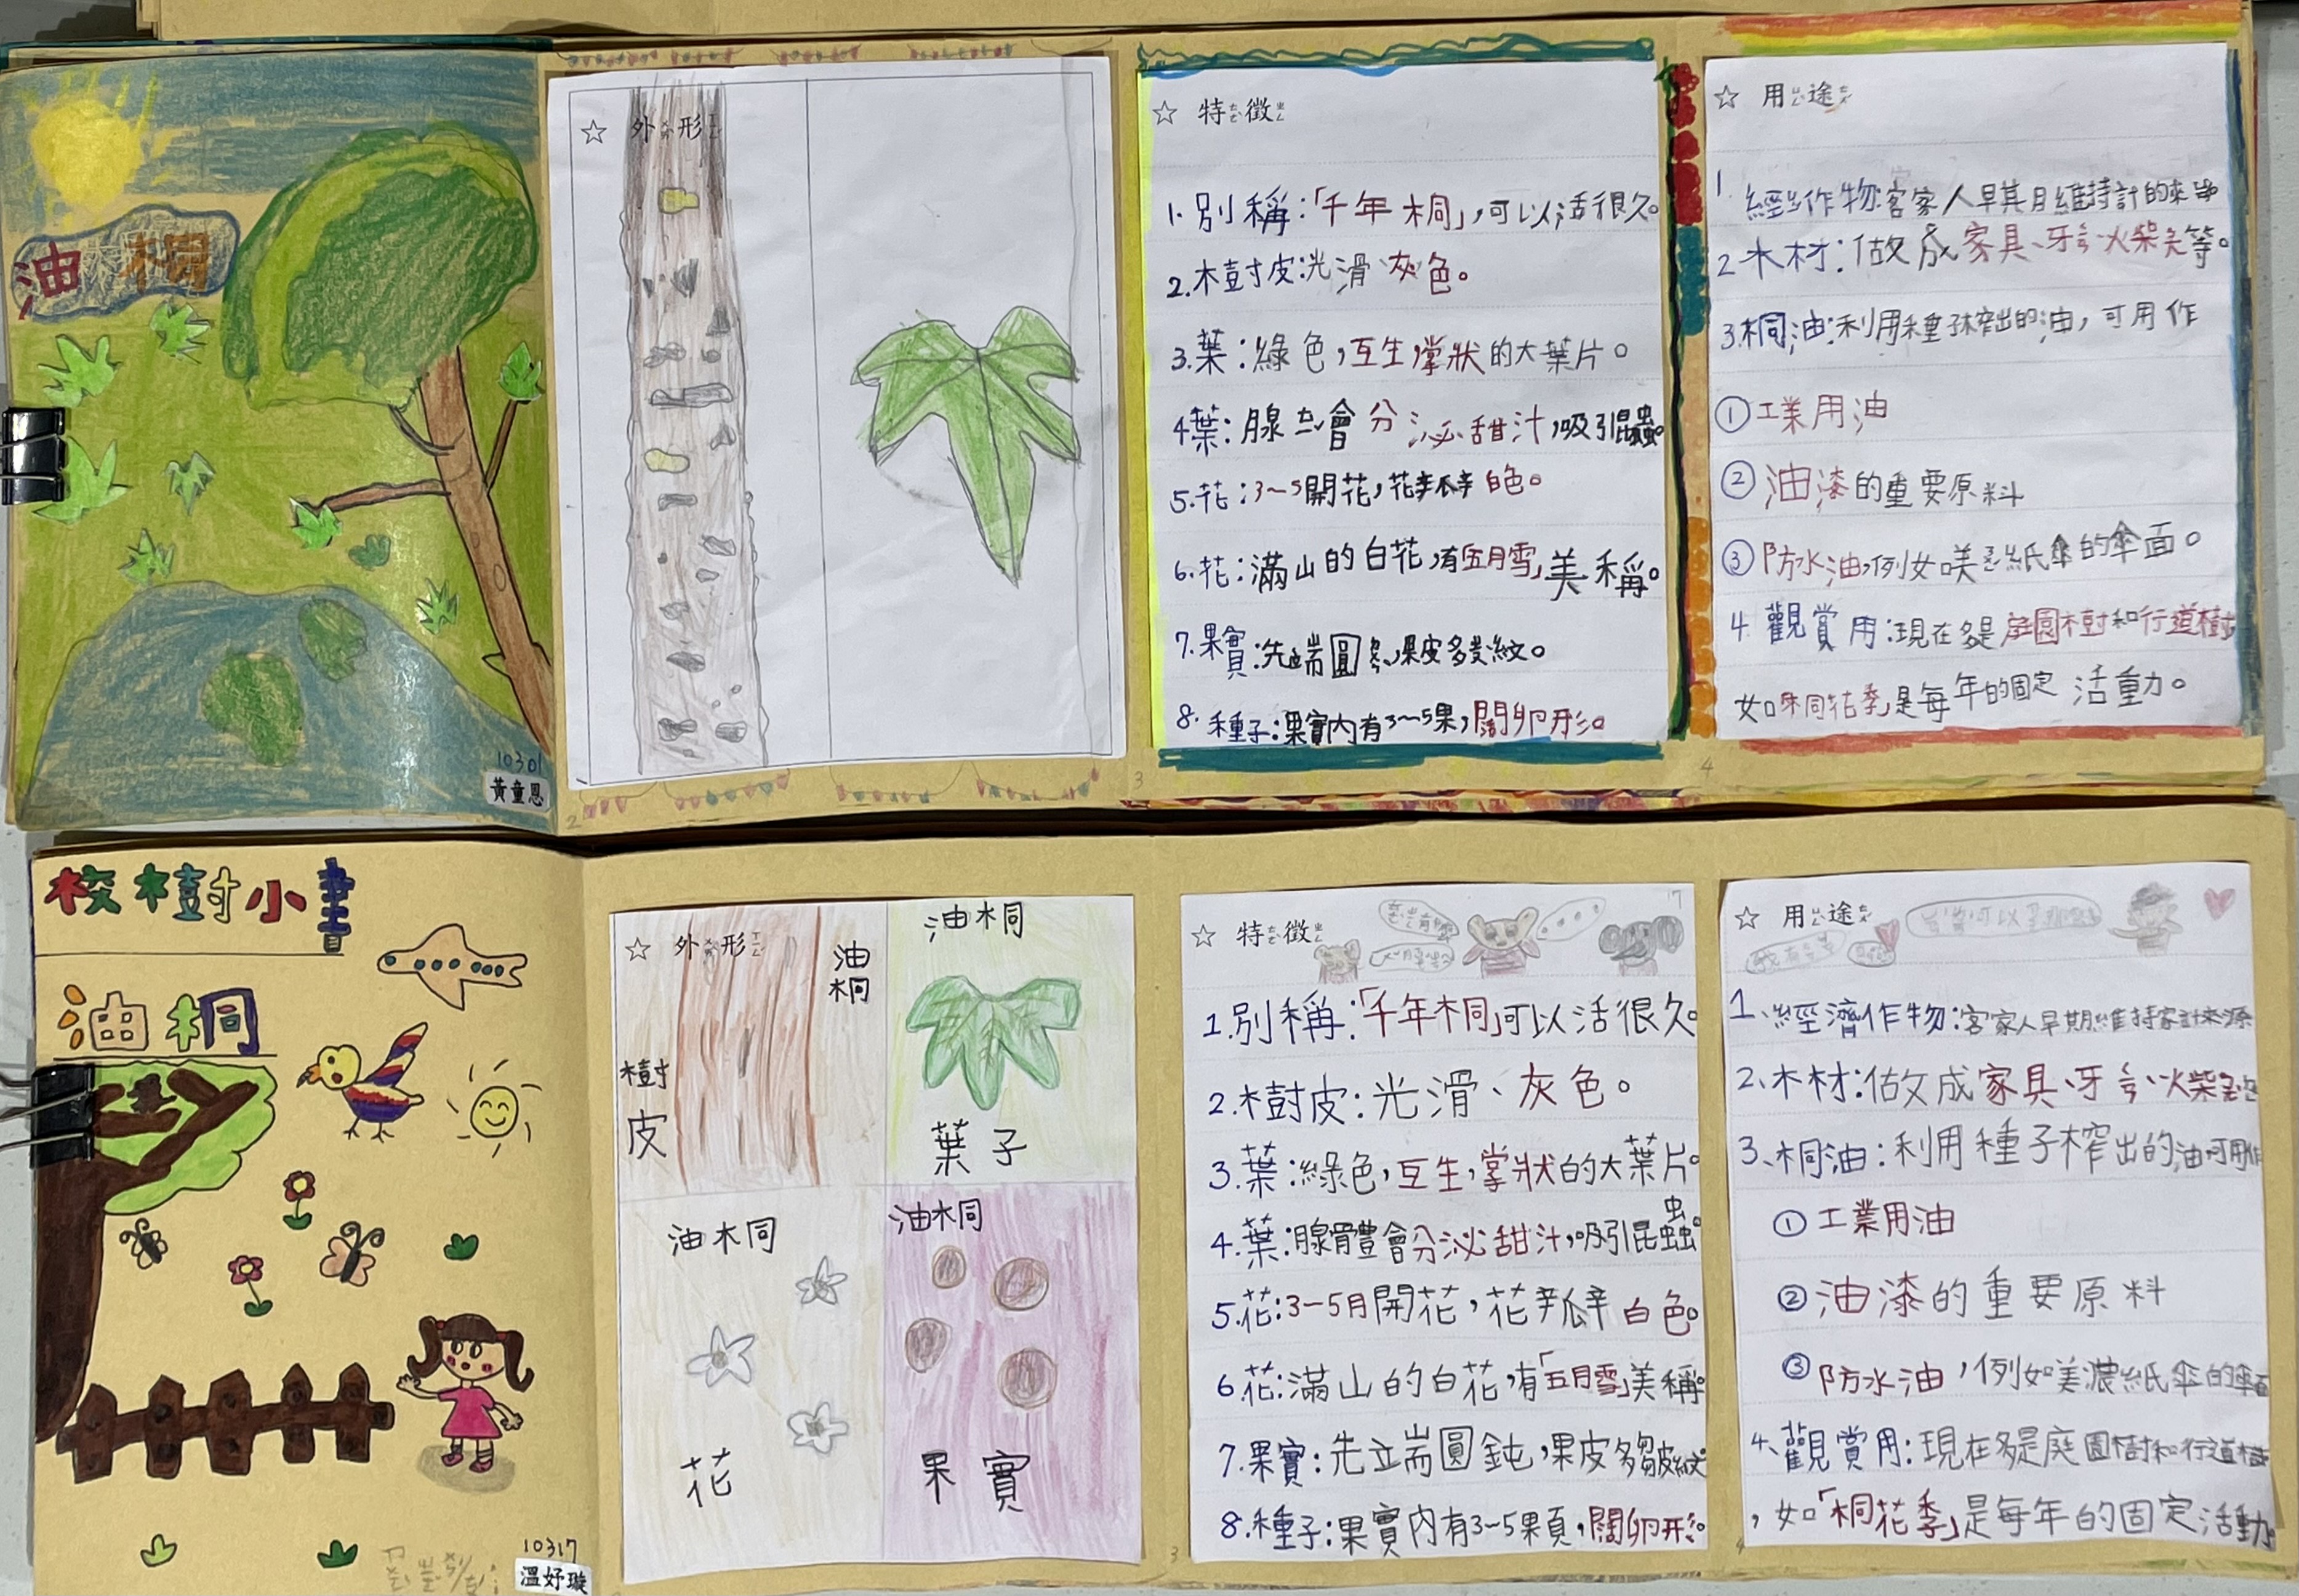 油桐
10301
黃童恩
2
☆ 外ㄨㄞˋ形ㄒㄧㄥˊ
☆ 特ㄊㄜˋ徵ㄓㄥ
1.別稱:「千年桐」,可以活很久。
2.樹皮:光滑、灰色。
3.葉:綠色,互生,掌狀的大葉片。
4葉:腺ㄊㄧˇ會分泌甜汁,吸引昆蟲。
5.花:3~5開花,花辛瓜辛白色。
6.花:滿山的白花,有「五月雪」美稱。
7.果實:先端圓,果皮多皮紋。
8.種子:果實內有3~5果,闊卵形。
3
☆ 用ㄩㄥˋ途ㄊㄨˊ
1.作物:客家人早期維持計的來
2木材:做成家具、牙ㄑㄧㄢ、火柴等。
3.桐油:利用種子榨出的油,可用作
①工業用油
②油漆的重要原料
③防水油,例如美ㄋㄨㄥˊ紙傘的傘面。
4.觀賞用:現在多是庭園樹和行道樹
如「桐花季」是每年的固定活動。
4
校樹小書
油桐
10317
溫妤璇
☆ 外ㄨㄞˋ形ㄒㄧㄥˊ
油桐
樹皮
油桐
葉子
油桐
花
油桐
果實
☆ 特ㄊㄜˋ徵ㄓㄥ
17
1.別稱:「千年桐」可以活很久。
2.樹皮:光滑、灰色。
3.葉:綠色,互生,掌狀的大葉片。
4.葉:腺體會分泌甜汁,吸引昆蟲。
5.花:3~5月開花,花辛瓜辛白色。
6花:滿山的白花,有「五月雪」美稱。
7.果實:先端圓鈍,果皮多皺紋
8.種子:果實內有3~5果頁,闊卵形。
3
☆ 用ㄩㄥˋ途ㄊㄨˊ
1、經濟作物:客家人早期維持家計來源
2、木材:做成家具、牙ㄑㄧㄢ、火柴
3、桐油:利用種子榨出的油可用作
①工業用油
②油漆的重要原料
③防水油,例如美濃紙傘的傘面
4、觀賞用:現在多是庭園樹和行道樹
,如「桐花季」是每年的固定活動。
4